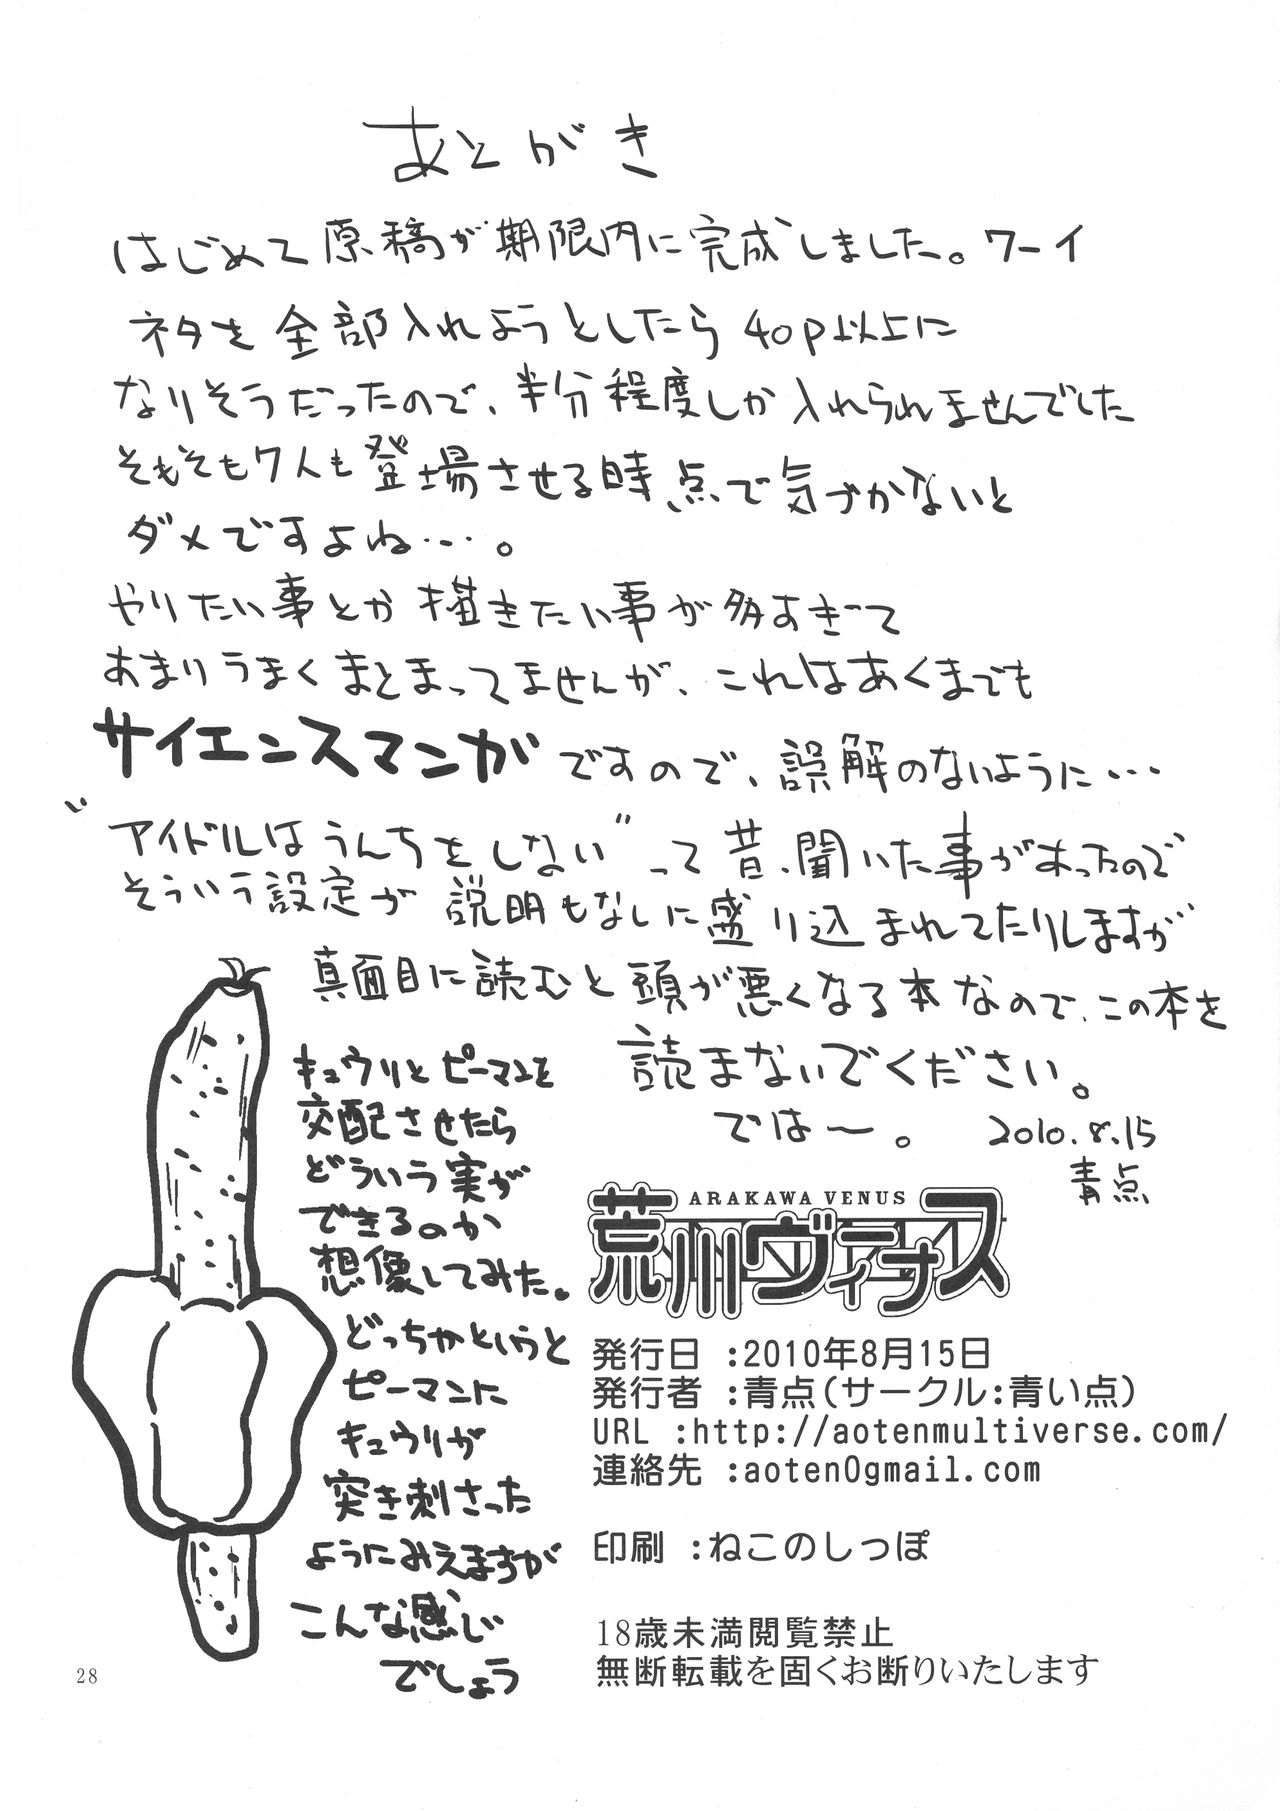 あとがき
はじめて原稿が期限内に完成しました。ワーイ
ネタを全部入れようとしたら40p以上に
なりそうだったので、半分程度しか入れられませんでした
そもそも7人も登場させる時点で気づかないと
ダメですよね…。
やりたい事とか描きたい事が多すぎて
あまりうまくまとまってませんが、これはあくまでも
サイエンスマンガですので、誤解のないように…
"アイドルはうんちをしない"って昔、聞いた事があったので
そういう設定が説明もなしに盛り込まれてたりしますが
真面目に読むと頭が悪くなる本なので、この本を
読まないでください。
では〜。 2010.8.15
青点
キュウリとピーマンを
交配させたら
どういう実が
できるのか
想像してみた。
どっちかというと
ピーマンに
キュウリが
突き刺さった
ようにみえますが
こんな感じ
でしょう
ARAKAWA VENUS
荒川ヴィーナス
発行日 :2010年8月15日
発行者 :青点(サークル:青い点)
URL :http://aotenmultiverse.com/
連絡先 :aoten0gmail.com
印刷 :ねこのしっぽ
18歳未満閲覧禁止
無断転載を固くお断りいたします
28